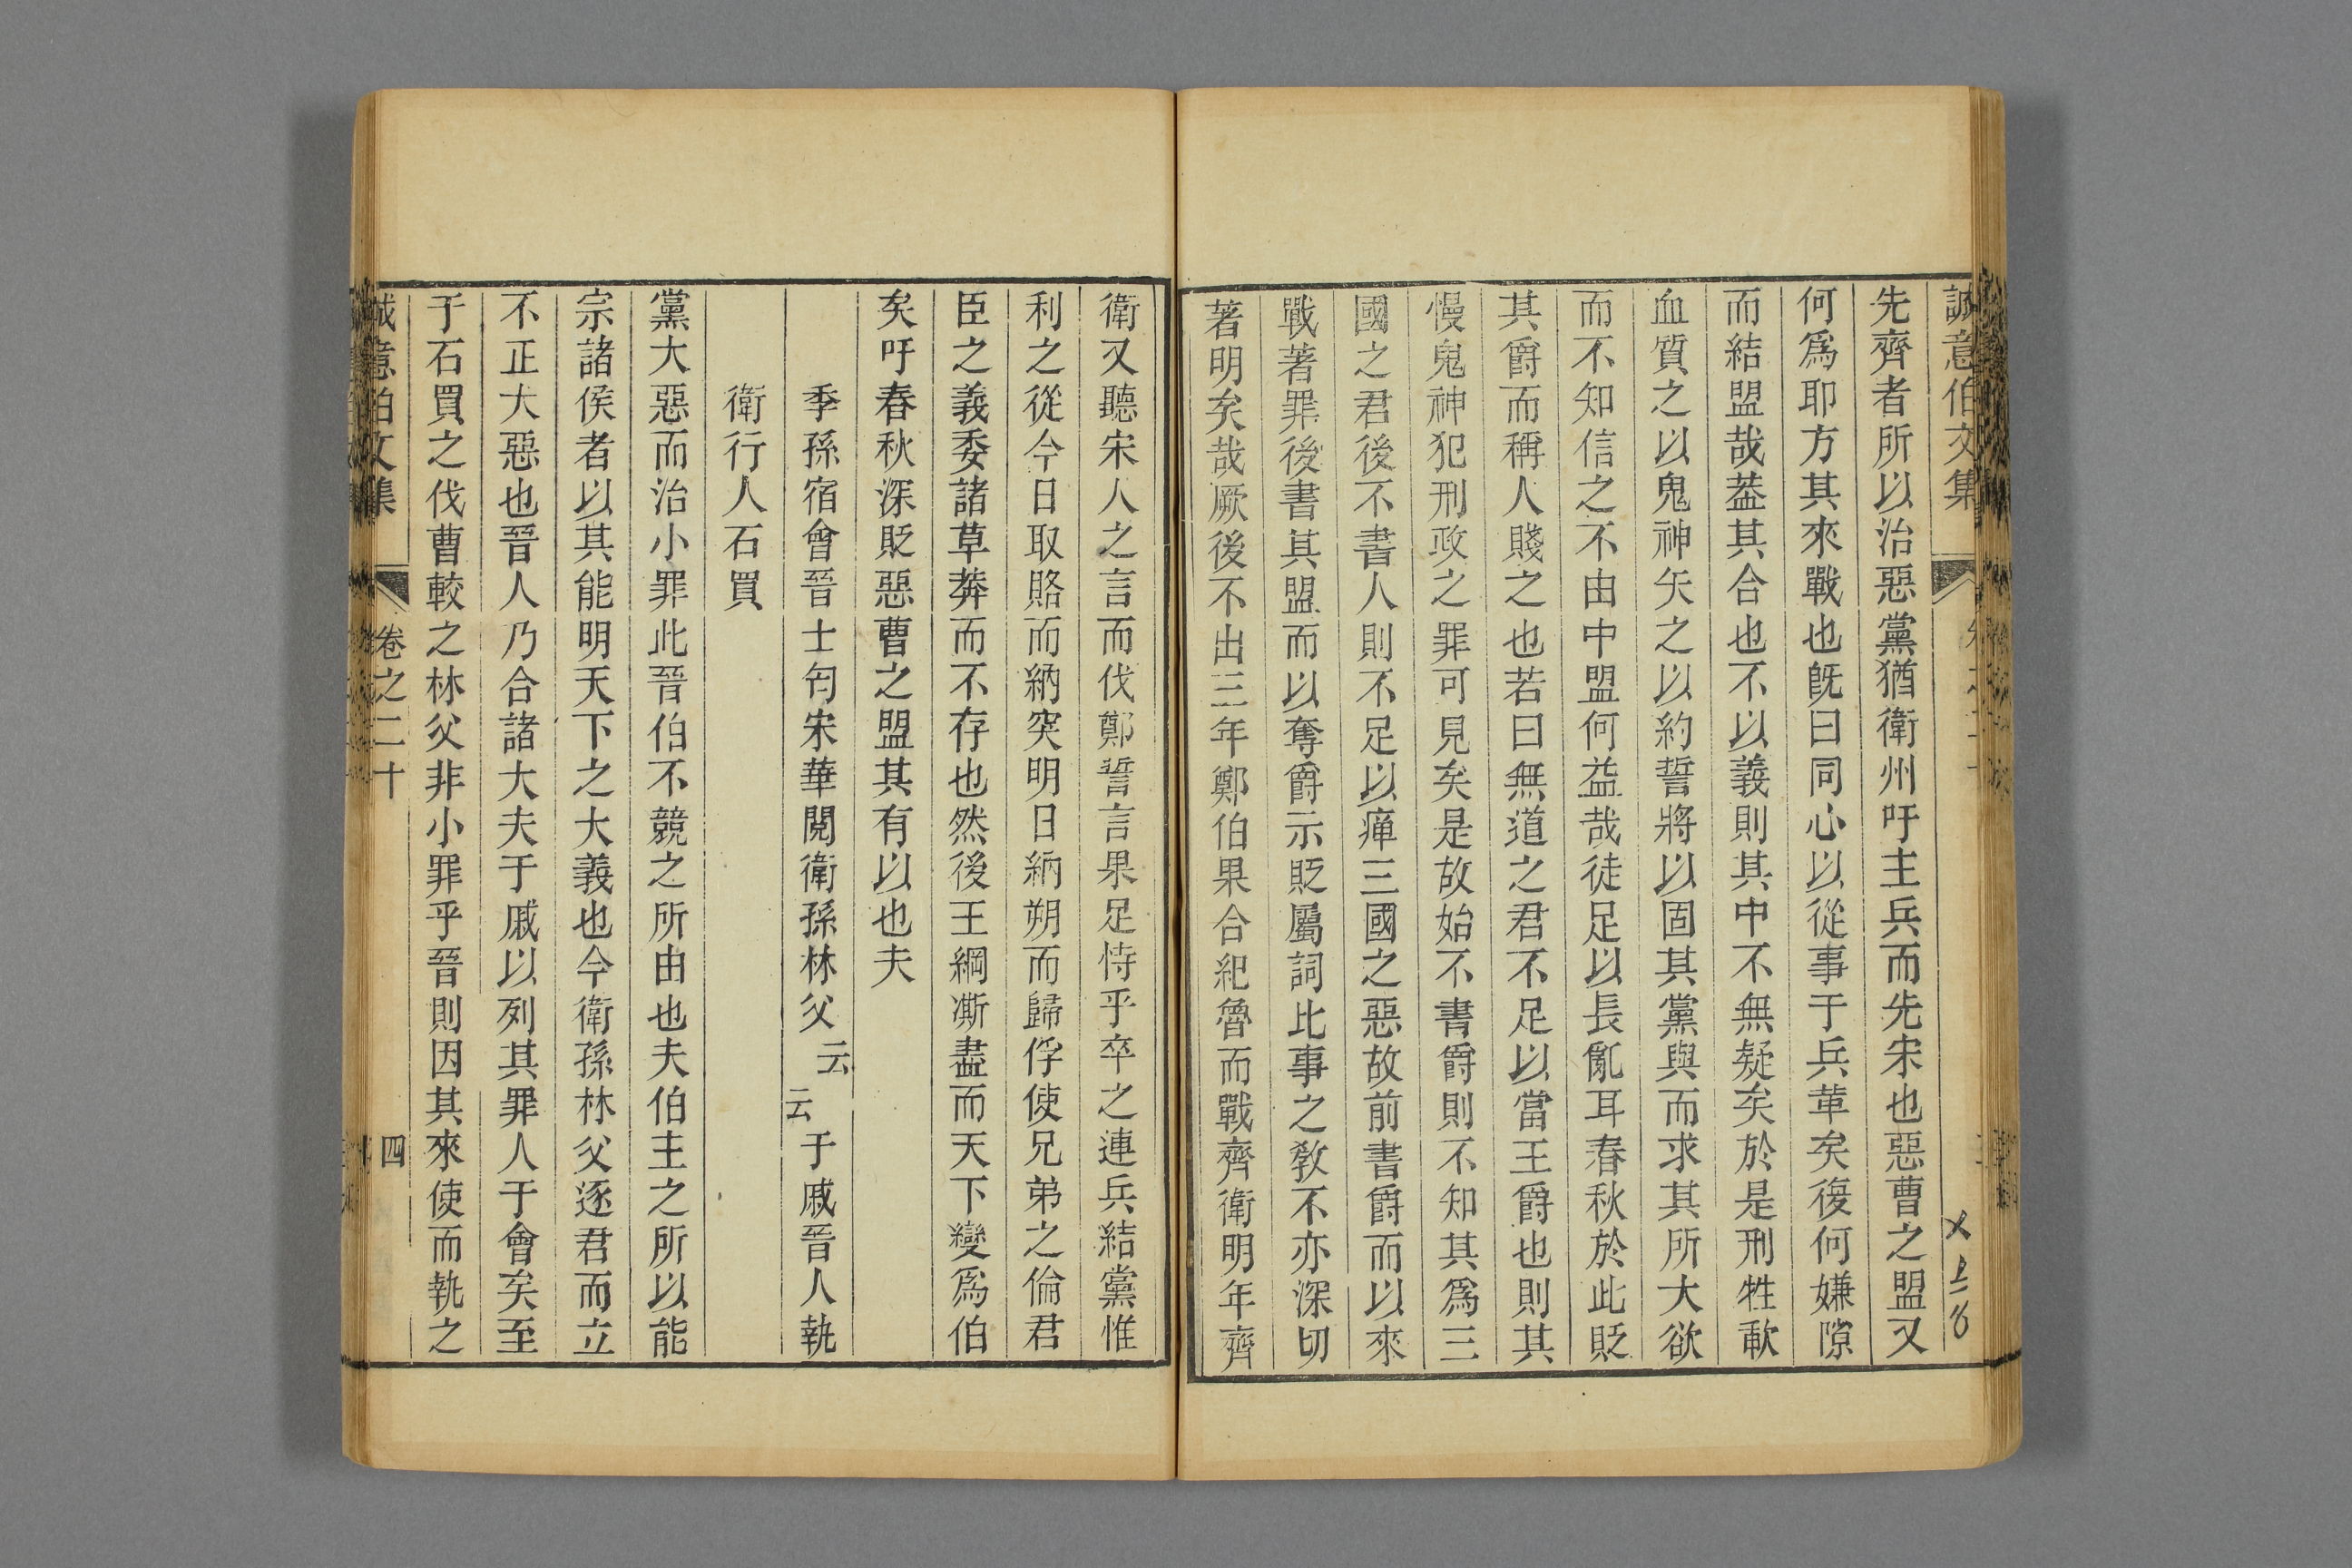 誠意伯文集
先齊者所以治惡黨猶衛州吁主兵而先宋也惡曹之盟又
何爲耶方其來戰也旣曰同心以從事于兵革矣復何嫌隙
而結盟哉葢其合也不以義則其中不無疑矣於是刑牲歃
血質之以鬼神矢之以約誓將以固其黨與而求其所大欲
而不知信之不由中盟何益哉徒足以長亂耳春秋於此貶
其爵而稱人賤之也若曰無道之君不足以當王爵也則其
慢鬼神犯刑政之罪可見矣是故始不書爵則不知其爲三
國之君後不書人則不足以癉三國之惡故前書爵而以來
戰著罪後書其盟而以奪爵示貶屬詞比事之敎不亦深切
著明矣哉厥後不出三年鄭伯果合紀魯而戰齊衛明年齊
衛又聽宋人之言而伐鄭誓言果足恃乎卒之連兵結黨惟
利之從今日取賂而納突明日納朔而歸俘使兄弟之倫君
臣之義委諸草莽而不存也然後王綱澌盡而天下變爲伯
矣吁春秋深貶惡曹之盟其有以也夫
季孫宿會晉士匄宋華閱衛孫林父云云于戚晉人執
衛行人石買
黨大惡而治小罪此晉伯不競之所由也夫伯主之所以能
宗諸侯者以其能明天下之大義也今衛孫林父逐君而立
不正大惡也晉人乃合諸大夫于戚以列其罪人于會矣至
于石買之伐曹較之林父非小罪乎晉則因其來使而執之
誠意伯文集 卷之二十 四